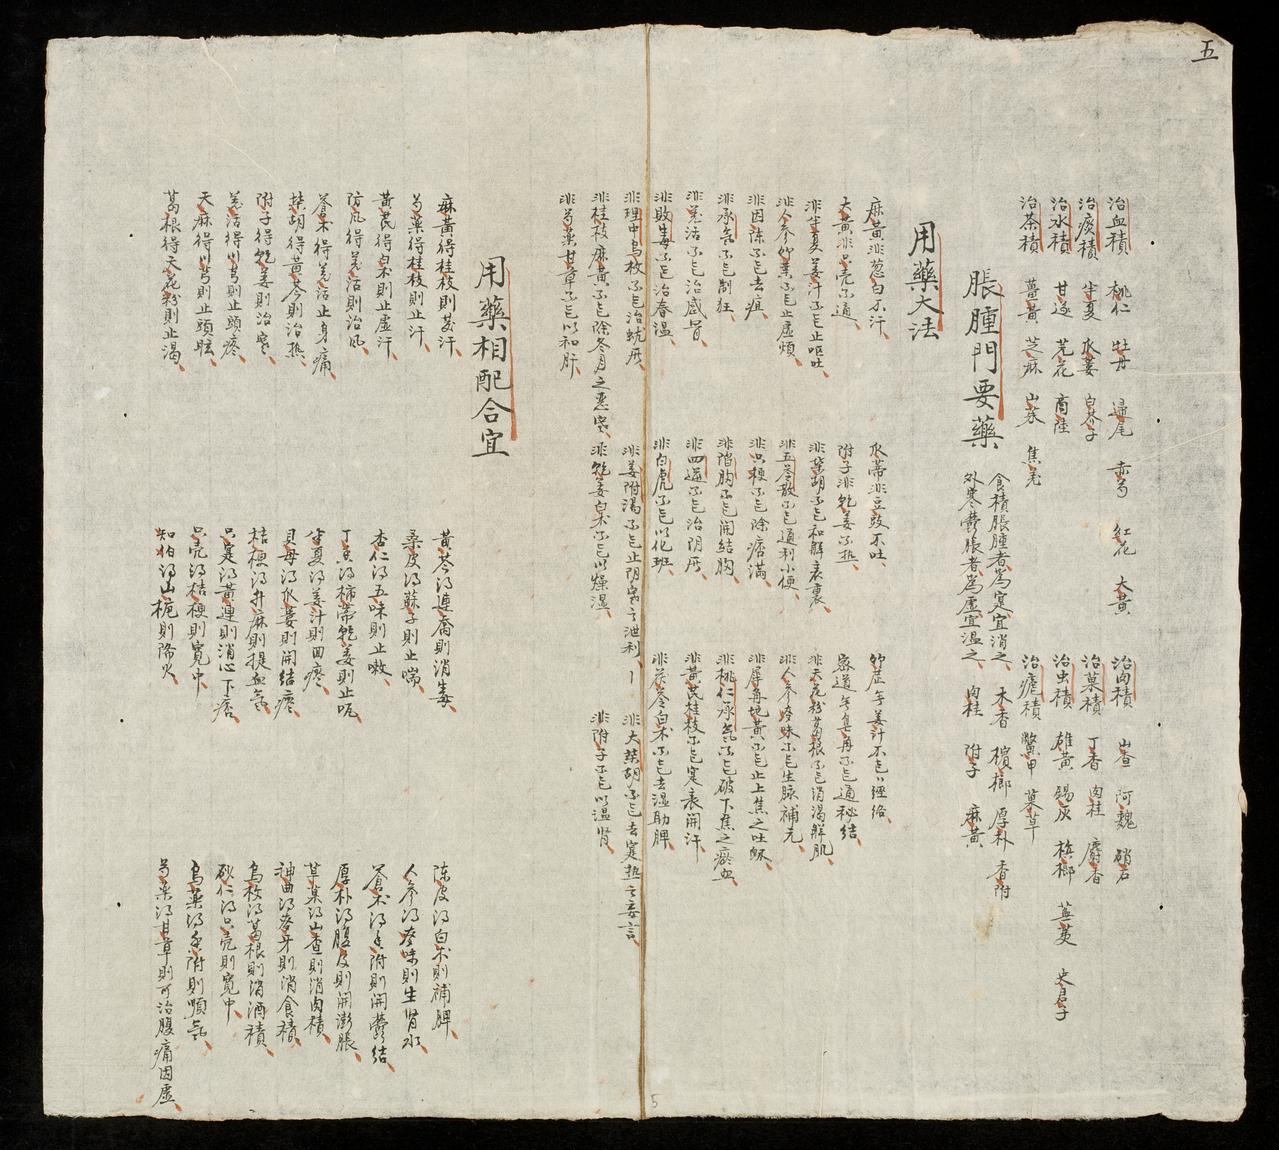 五
治血積 桃仁 牡丹 歸尾 赤芍 紅花 大黃
治痰積 半夏 瓜蔞 白芥子
治水積 甘遂 芫花 商陸
治茶積 薑黃 芝麻
治肉積 山查 阿魏 硝石
治菓積 丁香 肉桂 麝香
治虫積 雄黃 錫灰 檳榔 蕪荑 史君子
治瘧積 鱉甲 草
脹腫門要藥
食積脹腫者為寔宜消之、 木香 檳榔 厚朴 香附
外寒鬱脹者為虛宜溫之、 肉桂 附子 麻黃
用藥大法
麻黃非葱白不汗、
大黃非只壳不通、
非半夏姜汁不能止嘔吐、
非人參竹葉不能止虛煩、
非因陳不能去疸、
非承氣不能制狂、
非羗活不能治感冒、
非敗毒不能治春溫、
非理中烏枚不能治蚘厥、
非桂枝麻黃不能除冬月之悪寒、
非芍藥甘草不能以和肝、
瓜蒂非豆豉不吐、
附子非乾姜不热、
非柴胡不能和觧表裏、
非五苓散不能通利小便、
非只梗不能除痞滿、
非陷胸不能開結胸、
非四逆不能治阴厥、
非白虎不能以化班、
非姜附湯不能止阴寒之泄利、
非乾姜白术不能以燥湿、
竹瀝無姜汁不能以經络、
蜜道無皂角不能通秘结、
非天花粉葛根不能消渴觧肌
非人參麥味不能生脉補元、
非犀角地黃不能止上焦之吐衂、
非桃仁承氣不能破下焦之瘀血、
非黃芪桂枝不能寔表開汗、
非茯苓白术不能去湿助脾、
非大柴胡不能去寔热之妄言、
非附子不能以温肾、
用藥相配合宜
麻黃得桂枝則發汗、
芍藥得桂枝則止汗、
黃芪得白术則止虛汗、
防风得羗活則治风、
蒼术得羗活止身痛、
柴胡得黃芩則治热、
附子得乾姜則治寒、
羗活得川芎則止頭疼、
天麻得川芎則止頭眩、
葛根得天花粉則止渴、
黃芩得連喬則消毒、
桑皮得蘇子則止喘、
杏仁得五味則止嗽、
丁香得柿蒂乾姜則止呃、
半夏得姜汁則回痰、
貝母得瓜蔞則開结痰、
桔梗得升麻則提血氣、
只寔得黃連則消心下痞、
只壳得桔梗則寬中、
知柏得山栀則降火、
陳皮得白术則補脾、
人參得麥味則生肾水、
蒼术得香附則開鬱结、
厚朴得腹皮則開澎脹、
草菓得山查則消肉積、
神曲得麥牙則消食積、
烏枚得葛根則消酒積、
砂仁得只壳則寬中、
烏藥得香附則順氣、
芍藥得甘草則可治腹痛因虛、
5